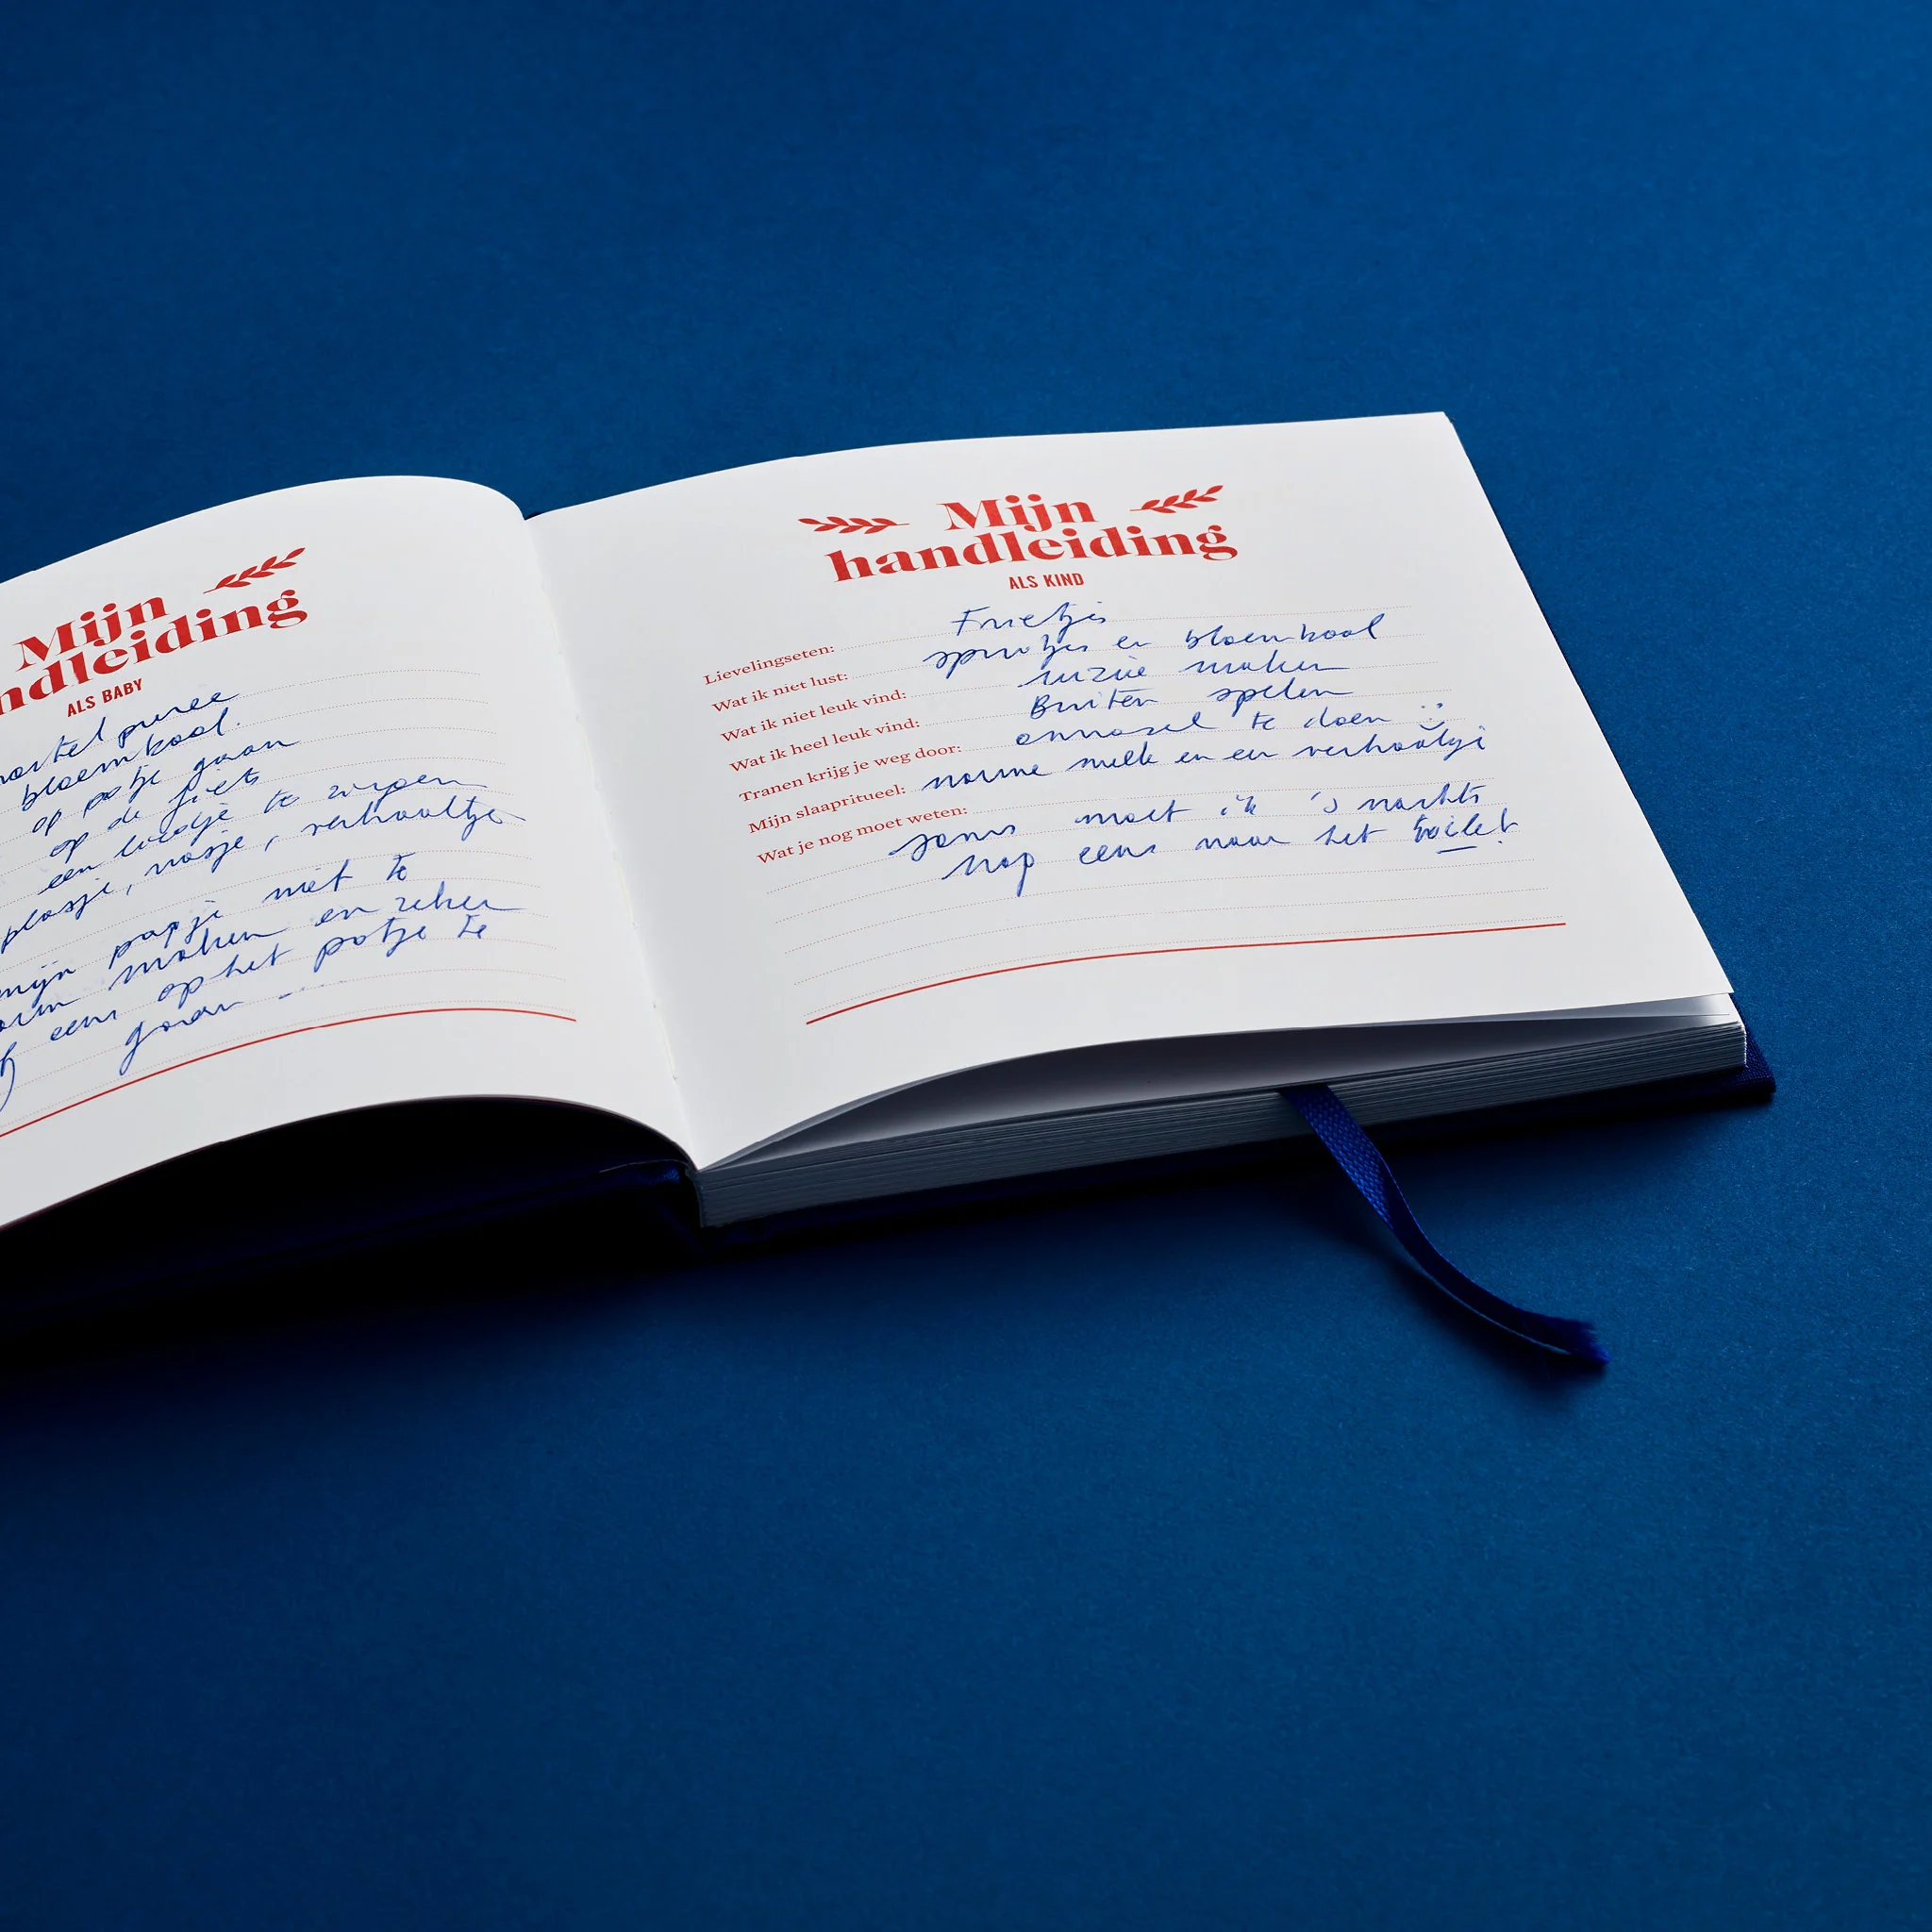 Mijn
ndleiding
ALS BABY
bloemkool.
op potje gaan
op de fiets
een liedje te
plasje, nasje, verhaaltje
mijn papje niet te
maken en zeker
eens op het potje te
gaan
Mijn
handleiding
ALS KIND
Lievelingseten: Frietjes
Wat ik niet lust: spruitjes en bloemkool
Wat ik niet leuk vind: ruzie maken
Wat ik heel leuk vind: Buiten spelen
Tranen krijg je weg door: onnozel te doen :)
Mijn slaapritueel: warme melk en een verhaaltje
Wat je nog moet weten:
soms moet ik 's nachts
nog eens naar het toilet!